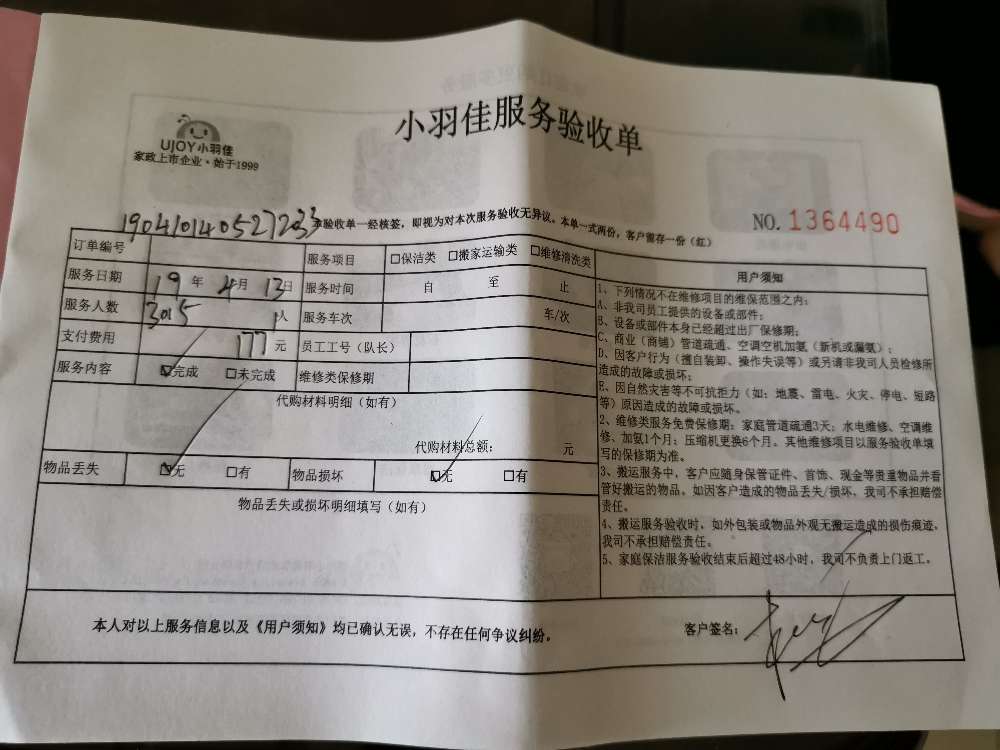 小羽佳服务验收单
UJOY小羽佳
家政上市企业·始于1999
1904101405272033
本验收单一经核签，即视为对本次服务验收无异议。本单一式两份，客户留存一份（红）
NO.1364490
订单编号 服务项目 □保洁类 □搬家运输类 □维修清洗类
服务日期 19年4月13日 服务时间 自 至 止
服务人数 3015 人 服务车次 车/次
支付费用 177元 员工工号（队长）
服务内容 ☑完成 □未完成 维修类保修期
代购材料明细（如有）
代购材料总额： 元
物品丢失 ☑无 □有 物品损坏 ☑无 □有
物品丢失或损坏明细填写（如有）
用户须知
1、下列情况不在维修项目的维保范围之内：
A、非我司员工提供的设备或部件；
B、设备或部件本身已经超过出厂保修期；
C、商业（商铺）管道疏通、空调空机加氨（新机或漏氨）；
D、因客户行为（擅自装卸、操作失误等）或另请非我司人员检修所
造成的故障或损坏；
E、因自然灾害等不可抗拒力（如：地震、雷电、火灾、停电、短路
等）原因造成的故障或损坏。
2、维修类服务免费保修期：家庭管道疏通3天；水电维修、空调维
修、加氨1个月；压缩机更换6个月。其他维修项目以服务验收单填
写的保修期为准。
3、搬运服务中，客户应随身保管证件、首饰、现金等贵重物品并看
管好搬运的物品，如因客户造成的物品丢失/损坏，我司不承担赔偿
责任。
4、搬运服务验收时，如外包装或物品外观无搬运造成的损伤痕迹，
我司不承担赔偿责任。
5、家庭保洁服务验收结束后超过48小时，我司不负责上门返工。
本人对以上服务信息以及《用户须知》均已确认无误，不存在任何争议纠纷。
客户签名：